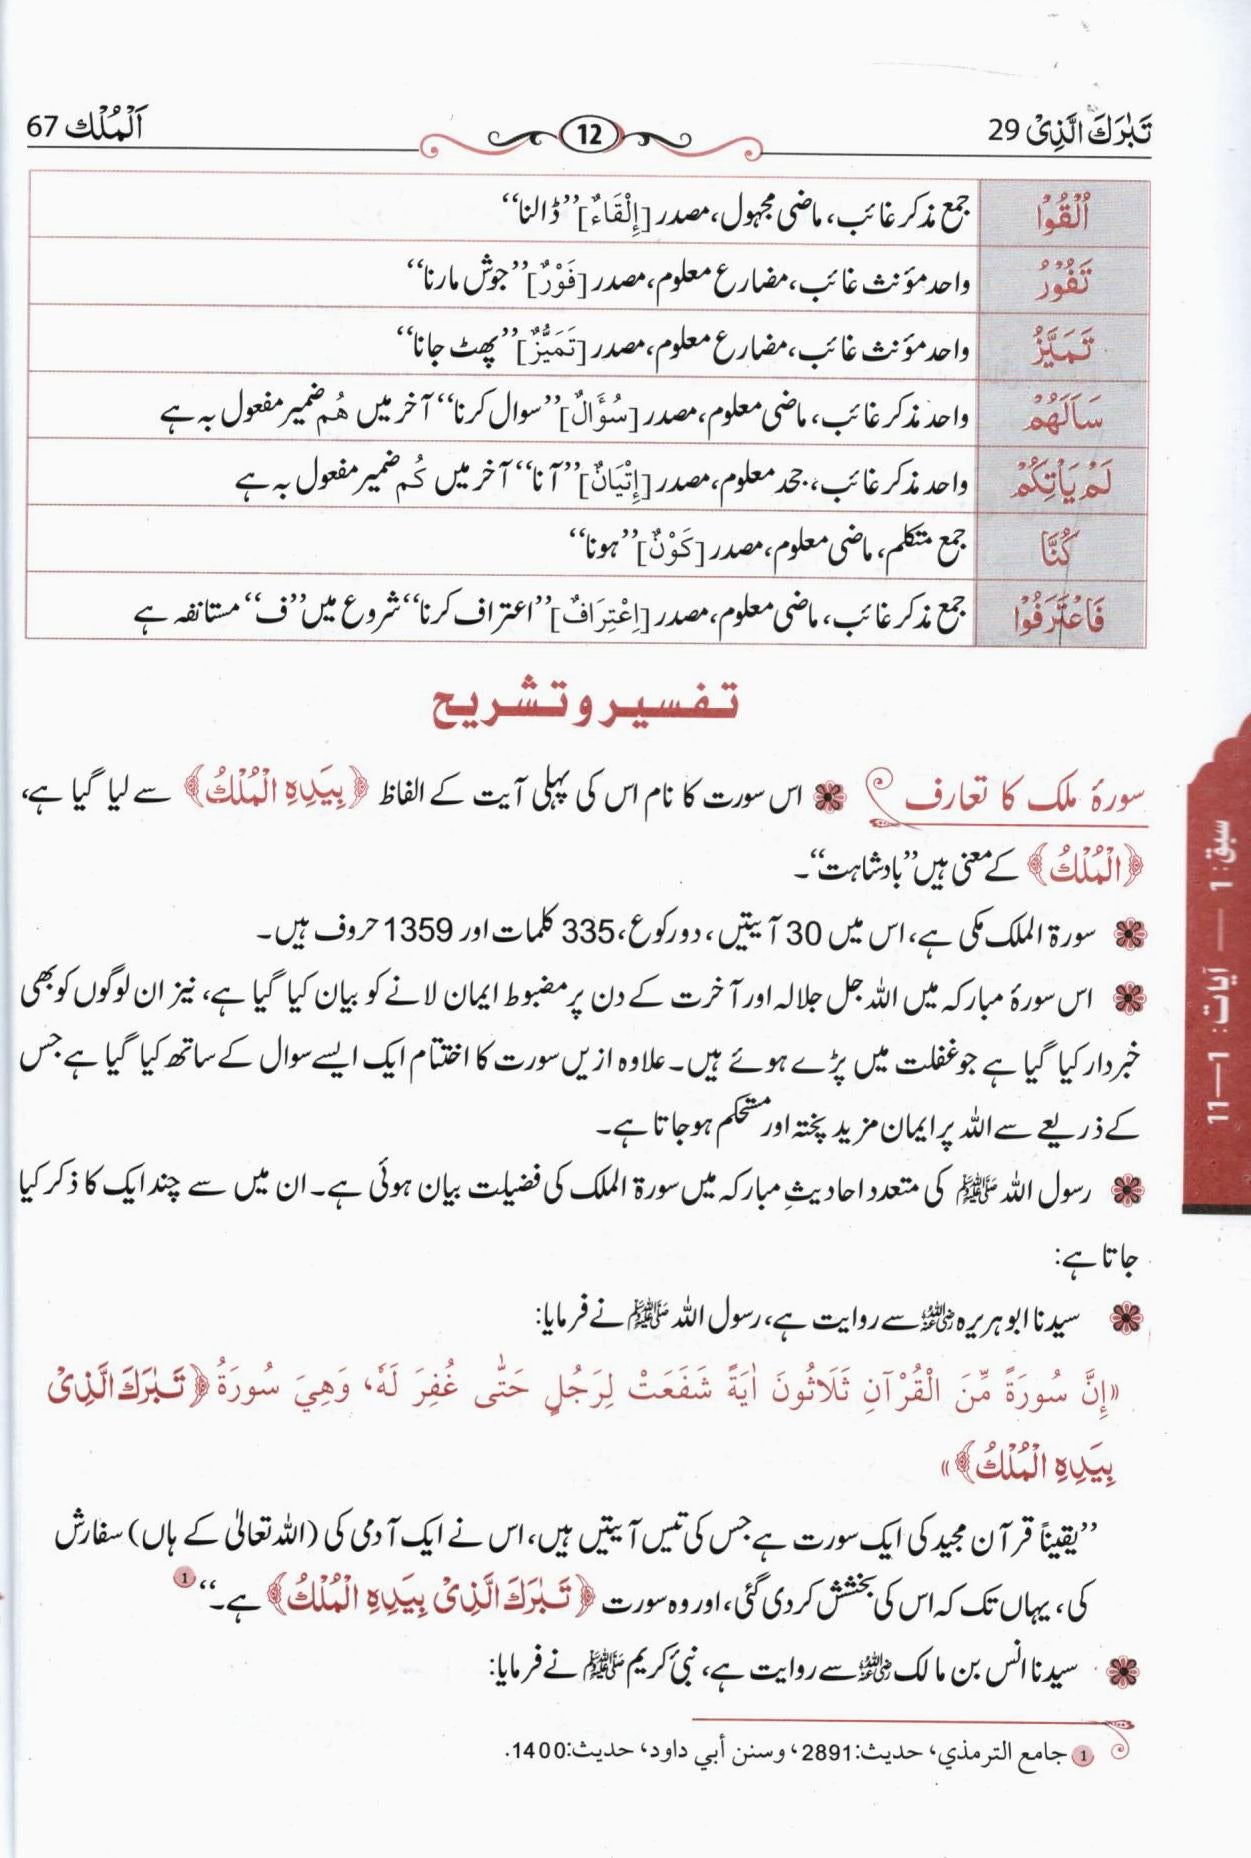 تَبٰرَكَ الَّذِیْ 29
12
اَلْمُلْك 67
اُلْقُوْا جمع مذکر غائب، ماضی مجہول، مصدر [إِلْقَاءٌ] ’’ڈالنا‘‘
تَفُوْرُ واحد مؤنث غائب، مضارع معلوم، مصدر [فَوْرٌ] ’’جوش مارنا‘‘
تَمَیَّزُ واحد مؤنث غائب، مضارع معلوم، مصدر [تَمَيُّزٌ] ’’پھٹ جانا‘‘
سَاَلَهُمْ واحد مذکر غائب، ماضی معلوم، مصدر [سُؤَالٌ] ’’سوال کرنا‘‘ آخر میں هُم ضمیر مفعول بہ ہے
لَمْ یَاْتِکُمْ واحد مذکر غائب، جحد معلوم، مصدر [إِتْيَانٌ] ’’آنا‘‘ آخر میں کُم ضمیر مفعول بہ ہے
کُنَّا جمع متکلم، ماضی معلوم، مصدر [كَوْنٌ] ’’ہونا‘‘
فَاعْتَرَفُوْا جمع مذکر غائب، ماضی معلوم، مصدر [اِعْتِرَافٌ] ’’اعتراف کرنا‘‘ شروع میں ’’ف‘‘ مستانفہ ہے
تفسیر و تشریح
سورۂ ملک کا تعارف اس سورت کا نام اس کی پہلی آیت کے الفاظ ﴿بِیَدِهِ الْمُلْكُ﴾ سے لیا گیا ہے،
﴿الْمُلْكُ﴾ کے معنی ہیں ’’بادشاہت‘‘۔
سورۃ الملک مکی ہے، اس میں 30 آیتیں، دو رکوع، 335 کلمات اور 1359 حروف ہیں۔
اس سورۂ مبارکہ میں اللہ جل جلالہ اور آخرت کے دن پر مضبوط ایمان لانے کو بیان کیا گیا ہے، نیز ان لوگوں کو بھی
خبردار کیا گیا ہے جو غفلت میں پڑے ہوئے ہیں۔ علاوہ ازیں سورت کا اختتام ایک ایسے سوال کے ساتھ کیا گیا ہے جس
کے ذریعے سے اللہ پر ایمان مزید پختہ اور مستحکم ہو جاتا ہے۔
رسول اللہ ﷺ کی متعدد احادیثِ مبارکہ میں سورۃ الملک کی فضیلت بیان ہوئی ہے۔ ان میں سے چند ایک کا ذکر کیا
جاتا ہے:
سیدنا ابو ہریرہ رضی اللہ عنہ سے روایت ہے، رسول اللہ ﷺ نے فرمایا:
«إِنَّ سُورَةً مِّنَ الْقُرْآنِ ثَلَاثُونَ اٰيَةً شَفَعَتْ لِرَجُلٍ حَتّٰى غُفِرَ لَهٗ، وَهِيَ سُورَةُ ﴿تَبٰرَكَ الَّذِیْ
بِیَدِهِ الْمُلْكُ﴾»
’’یقیناً قرآن مجید کی ایک سورت ہے جس کی تیس آیتیں ہیں، اس نے ایک آدمی کی (اللہ تعالیٰ کے ہاں) سفارش
کی، یہاں تک کہ اس کی بخشش کر دی گئی، اور وہ سورت ﴿تَبٰرَكَ الَّذِیْ بِیَدِهِ الْمُلْكُ﴾ ہے۔‘‘ 1
سیدنا انس بن مالک رضی اللہ عنہ سے روایت ہے، نبیٔ کریم ﷺ نے فرمایا:
1 جامع الترمذي، حديث:2891، وسنن أبي داود، حديث:1400.
سبق: 1 — آیات: 1—11